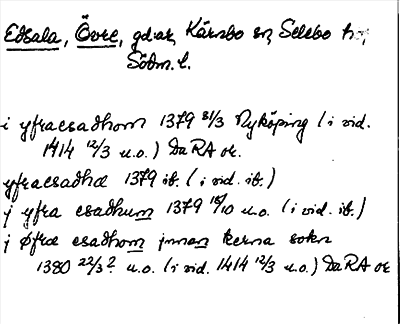 Edsala, Övre, gdar, Kärnbo sn, Selebo hd,
Södm. l.
i yfraesadhom 1379 31/3 Nyköping (i vid.
1414 12/3 u.o.) Da RA or.
yfraesadhæ 1379 ib. (i vid. ib.)
j yfra esadhum 1379 18/10 u.o. (i vid. ib.)
j øfræ esadhom jnnan kerna sokn
1380 22/3? u.o. (i vid. 1414 12/3 u.o.) Da RA or